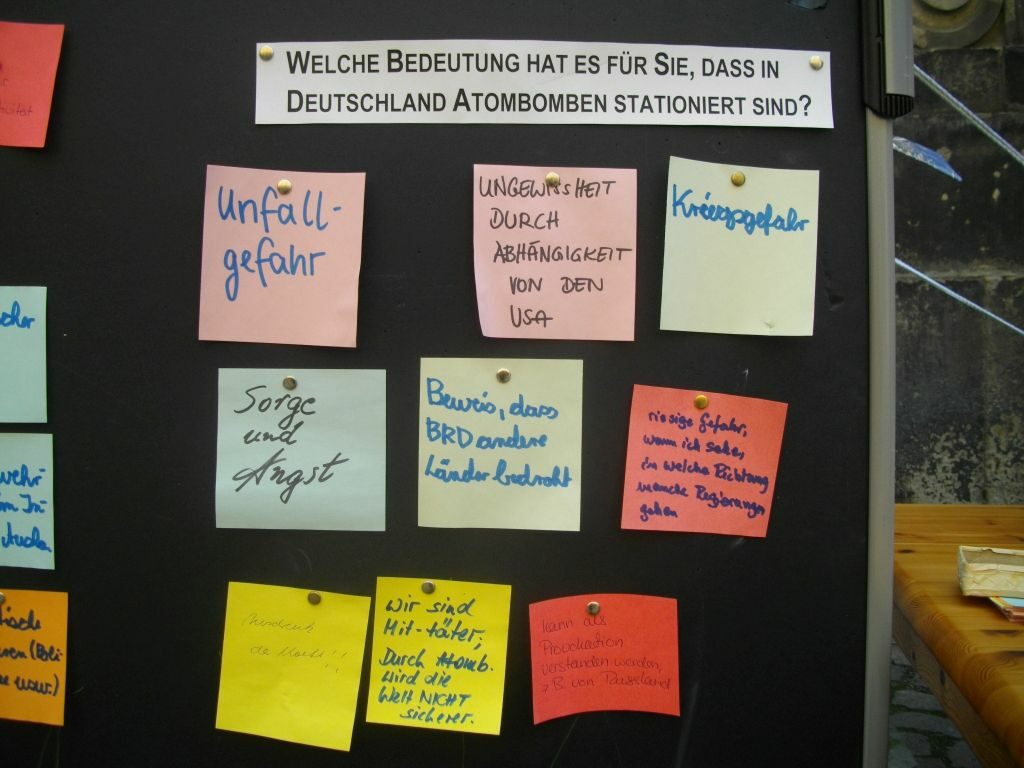 WELCHE BEDEUTUNG HAT ES FÜR SIE, DASS IN
DEUTSCHLAND ATOMBOMBEN STATIONIERT SIND?
Unfall-
gefahr
UNGEWISSHEIT
DURCH
ABHÄNGIGKEIT
VON DEN
USA
Kriegsgefahr
Sorge
und
Angst
Beweis, dass
BRD andere
Länder bedroht
riesige Gefahr,
wenn ich sehe,
in welche Richtung
manche Regierungen
gehen
der Macht!!!
Wir sind
Mit-täter,
Durch Atomb.
wird die
Welt NICHT
sicherer.
kann als
Provokation
verstanden werden,
z.B. von Russland
wehr